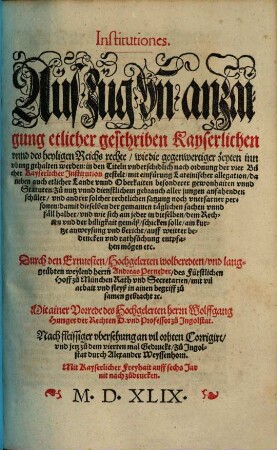 Institutiones.
Auszug vn̄ anzai
gung etlicher geschriben Kayserlichen
vnnd des heyligen Reichs rechte / wie die gegenwertiger zeyten inn
übung gehalten werden: in den Titeln vnderschidlich nach ordnung der vier Bü
cher Kayserlicher Institution gestelt / mit einfürung Lateinischer allegation / da
neben auch etlicher Lande vnnd Oberkaiten besonderer gewonhaiten vnnd
Statuten zů nutz vnnd dienstlichem gebrauch aller jungen anfahenden
schüler / vnd anderer solcher rechtlichen satzung noch vnerfarner per
sonen: damit dieselben der gemainen täglichen sachen vnnd
fäll halber / vnd wie sich am jeder in dieselben / dem Rech
ten vnd der billigkait gemäß schicken solle / ain kur
tze anweysung vnd bericht / auff weitter be
dencken vnd rathschöchung entpfa-
hen mögen etc.
Durch den Ernuesten / Hochgelerten wolberedten / vnd lang-
geübten weylend herrn Andreas Perneder / des Fürstlichen
Hoff zů München Räth vnd Secretarien / mit vil
arbait vnd fleyß in ainen begriff zů
samen gebracht etc.
Mit ainer Vorrede des Hochgelerten herrn Wolffgang
Hunger der Rechten D. vnd Professor zů Ingolstat.
Nach fleissiger vbersehung an vil orhten Corrigirt /
vnd jetz zů dem vierten mal Gedruckt / Zů Ingol-
stat durch Alexander Weyssenhorn.
Mit Kayserlicher Freyhait auff sechs Jar
nit nach zůdrucken.
M. D. XLIX.